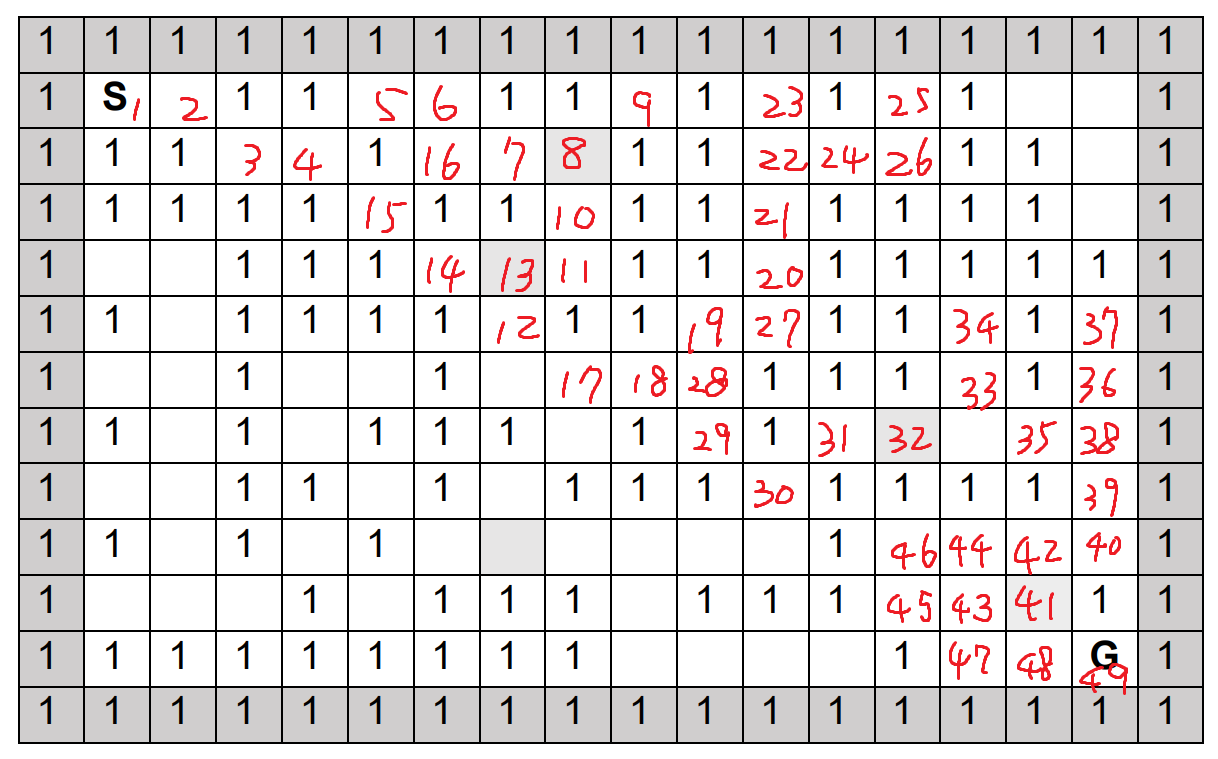 1 1 1 1 1 1 1 1 1 1 1 1 1 1 1 1 1 1
1 S1 2 1 1 5 6 1 1 9 1 23 1 25 1 1
1 1 1 3 4 1 16 7 8 1 1 22 24 26 1 1 1
1 1 1 1 1 15 1 1 10 1 1 21 1 1 1 1 1
1 1 1 1 14 13 11 1 1 20 1 1 1 1 1 1
1 1 1 1 1 1 12 1 1 19 27 1 1 34 1 37 1
1 1 1 17 18 28 1 1 1 33 1 36 1
1 1 1 1 1 1 1 29 1 31 32 35 38 1
1 1 1 1 1 1 1 30 1 1 1 1 39 1
1 1 1 1 1 46 44 42 40 1
1 1 1 1 1 1 1 1 45 43 41 1 1
1 1 1 1 1 1 1 1 1 1 47 48 G49 1
1 1 1 1 1 1 1 1 1 1 1 1 1 1 1 1 1 1